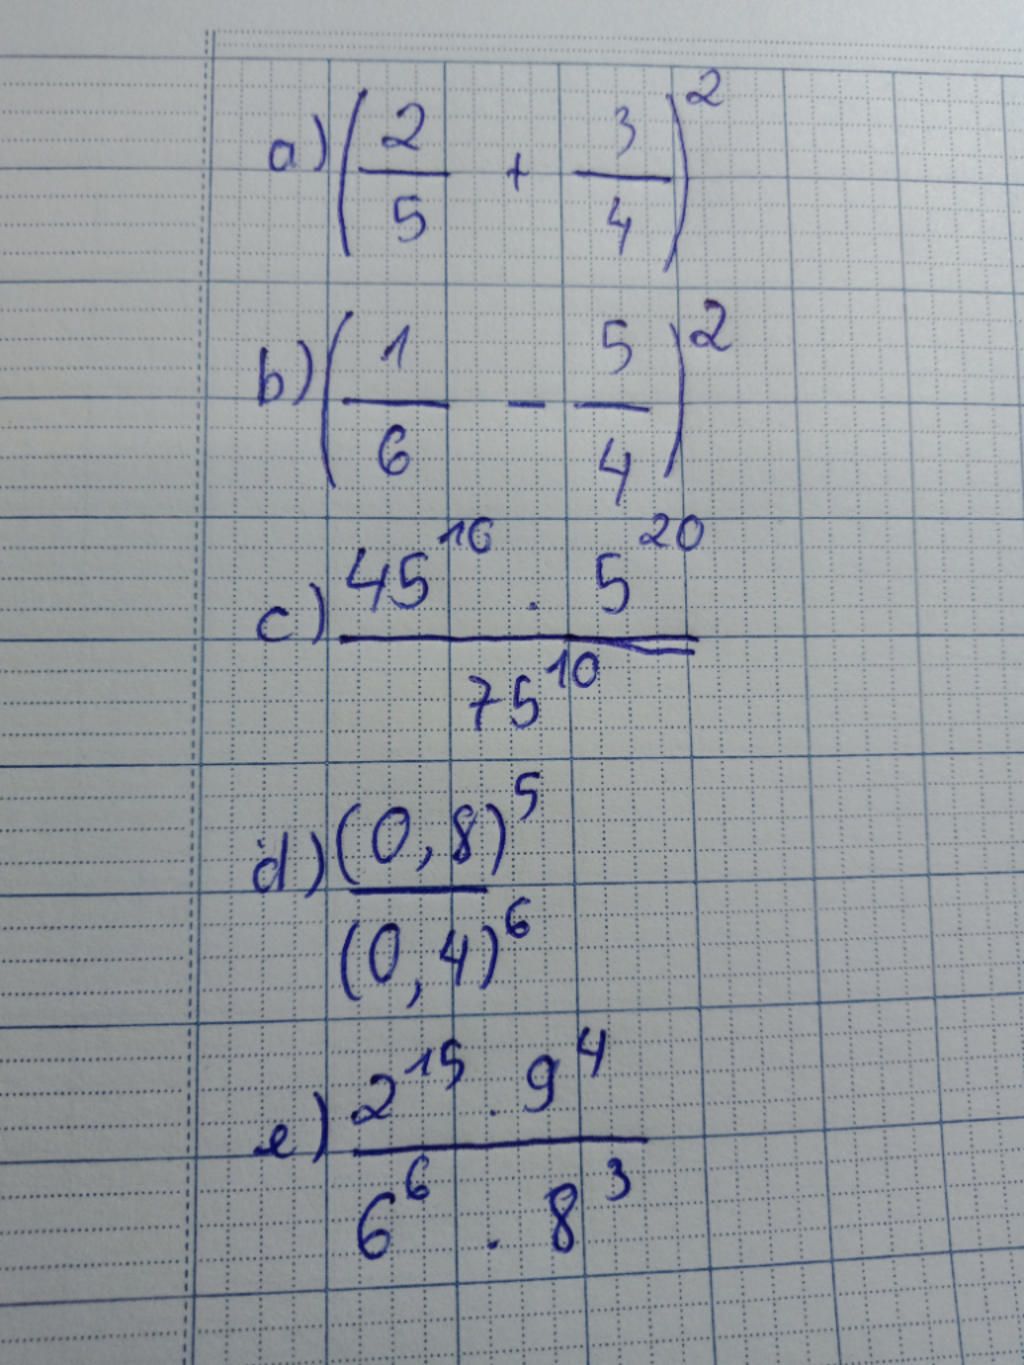 a) (2/5 + 3/4)²
b) (1/6 - 5/4)²
c) 45¹⁰ . 5²⁰ / 75¹⁰
d) (0,8)⁵ / (0,4)⁶
e) 2¹⁵ . 9⁴ / 6⁶ . 8³